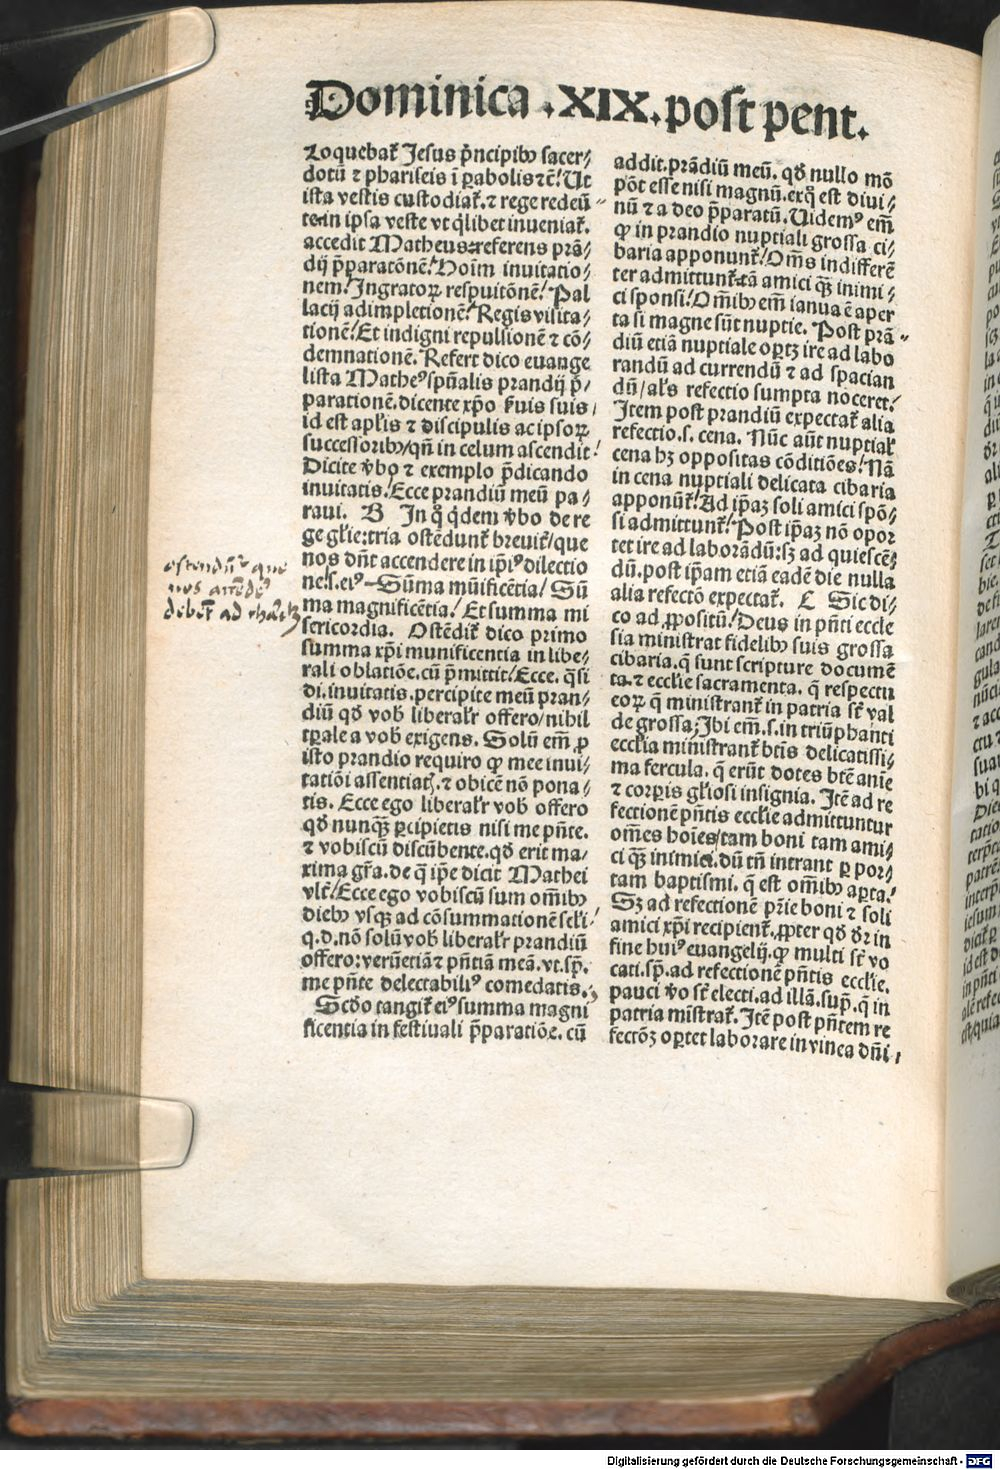 Dominica .XIX. post pent.
Loquebat᷑ Jesus pͥncipibꝰ sacer⸗
dotū ⁊ phariseis ī ꝑabolis ⁊cͣ. Ut
ista vestis custodiat᷑. ⁊ rege redeū⸗
te in ipsa veste vt qͥlibet inueniat᷑.
accedit Matheus referens prā⸗
dij p̄paratōnē/ Hoīm inuitatio⸗
nem/ Ingratoꝝ respuitōnē/ Pal
lacij adimpletionē/ Regis visita⸗
tionē/ Et indigni repulsionē ⁊ cō⸗
demnationē. Refert dico euange
lista Matheꝰ spūalis prandij p̄⸗
parationē. dicente xp̄o ẜuis suis/
id est apl'is ⁊ discipulis ac ipsoꝝ
successoribꝰ/ qn̄ in celum ascendit/
Dicite v̓bo ⁊ exemplo p̄dicando
inuitatis/ Ecce prandiū meū pa⸗
raui. B In qͦ qͥdem v̓bo de re
ge gl'ie: tria ostēdunt᷑ breuit᷑/ que
nos dn̄t accendere in ip̄iꝰ dilectio
nē. s. eiꝰ Sūma mūificētia/ Sū
ma magnificētia/ Et summa mi
sericordia. Ostēdit᷑ dico primo
summa xp̄i munificentia in libe⸗
rali oblatiōe. cū p̄mittit/ Ecce. q̄si
di. inuitatis. percipite meū pran⸗
diū qd̓ vob̓ liberal'r offero/ nihil
tꝑale a vob̓ exigens. Solū em̄ ꝓ
isto prandio requiro ꝙ mee inui⸗
tatiōi assentiatꝭ. ⁊ obicē nō pona⸗
tis. Ecce ego liberal'r vob̓ offero
qd̓ nunqꝫ ꝑcipietis nisi me pn̄te.
⁊ vobiscū discūbente. qd̓ erit ma⸗
xima gr̄a. de qͣ ip̄e dicit Mathei
vlt̓/ Ecce ego vobiscū sum om̄ibꝰ
diebꝰ vsqꝫ ad cōsummationē sc̄li/
q. d. nō solū vob̓ liberal'r prandiū
offero: verūetiā ⁊ pn̄tiā meā. vt. sp̄.
me pn̄te delectabiliꝰ comedatis.
Scd̓o tangit᷑ eiꝰ summa magni
ficentia in festiuali p̄paratiōe. cū
addit. prādiū meū. qd̓ nullo mō
pōt esse nisi magnū. ex qͦ est diui⸗
nū ⁊ a deo p̄paratū. Uidemꝰ em̄
ꝙ in prandio nuptiali grossa ci⸗
baria apponunt᷑/ Om̄s indifferē
ter admittunt᷑ tā amici qꝫ inimi⸗
ci sponsi/ Om̄ibꝰ em̄ ianua ē aper
ta si magne sūt nuptie. Post prā⸗
diū etiā nuptiale oꝑtꝫ ire ad labo
randū ad currendū ⁊ ad spacian
dū/ al's refectio sumpta noceret/
Item post prandiū expectat᷑ alia
refectio. s. cena. Nūc aūt nuptial'
cena hꝫ oppositas cōditiōes/ Nā
in cena nuptiali delicata cibaria
apponūt᷑/ Ad ip̄aꝫ soli amici spō⸗
si admittunt᷑/ Post ip̄aꝫ nō opor
tet ire ad laborādū: sꝫ ad quiescē⸗
dū. post ip̄am etiā eadē die nulla
alia refectō expectat᷑. C Sic di⸗
co ad ꝓpositū/ Deus in pn̄ti eccle
sia ministrat fidelibꝰ suis grossa
cibaria. q̄ sunt scripture documē
ta. ⁊ eccl'ie sacramenta. q̄ respectu
eoꝝ q̄ ministrant᷑ in patria st̄ val
de grossa/ Ibi em̄. s. in triūphanti
eccl'ia ministrant᷑ bt̄is delicatissi⸗
ma fercula. q̄ erūt dotes bt̄e anīe
⁊ corꝑis gl'iosi insignia. Itē ad re
fectionē pn̄tis eccl'ie admittuntur
om̄es hoīes/ tam boni tam ami⸗
ci qꝫ inimici. dū tn̄ intrant ꝑ por⸗
tam baptismi. q̄ est om̄ibꝰ aꝑta/
Sꝫ ad refectionē pr̄ie boni ⁊ soli
amici xp̄i recipient᷑. ꝓpter qd̓ dr̄ in
fine huiꝰ euangelij. ꝙ multi st̄ vo
cati. sp̄. ad refectionē pn̄tis eccl'ie.
pauci v̓o st̄ electi. ad illā. sup̄. q̄ in
patria mīstrat᷑. Itē post pn̄tem re
fectōꝫ oꝑtet laborare in vinea dn̄i/
Digitalisierung gefördert durch die Deutsche Forschungsgemeinschaft - DFG